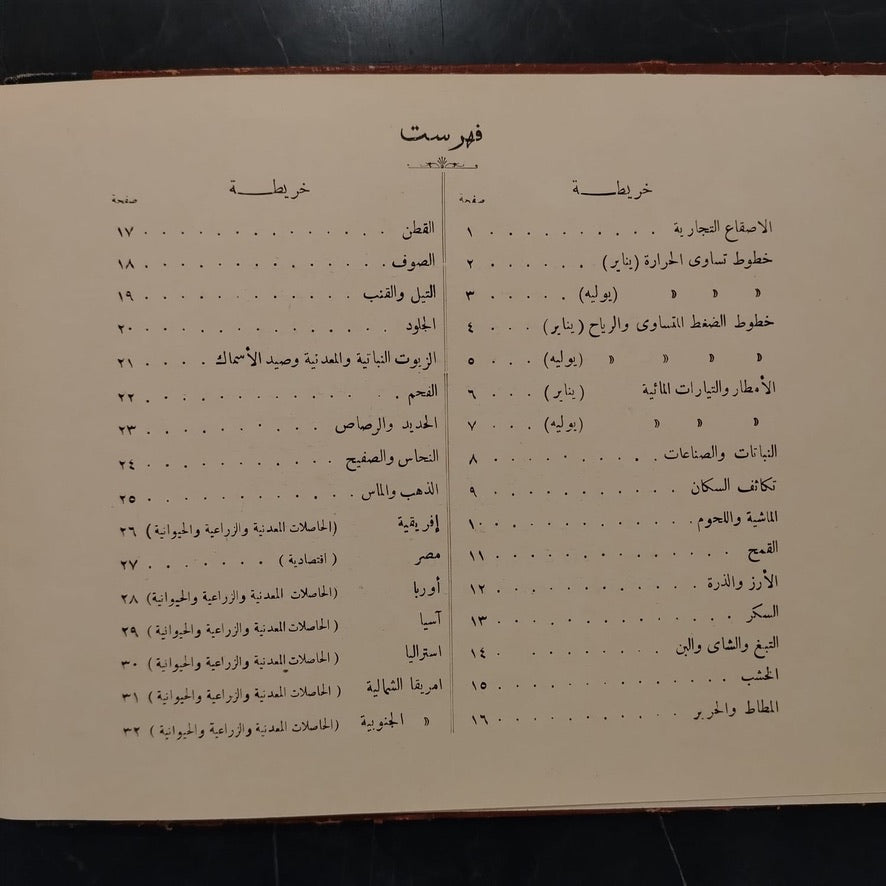 فهرست
خريطة صفحة
الاصقاع التجارية . . . . . . . . . . ١
خطوط تساوى الحرارة (يناير) . . . . . . ٢
» » » (يوليه) . . . . . ٣
خطوط الضغط المتساوى والرياح (يناير) . . . ٤
» » » » (يوليه) . . . ٥
الأمطار والتيارات المائية (يناير) . . . ٦
» » » (يوليه) . . . ٧
النباتات والصناعات . . . . . . . . . . ٨
تكاثف السكان . . . . . . . . . . ٩
الماشية واللحوم . . . . . . . . . . ١٠
القمح . . . . . . . . . . . . ١١
الأرز والذرة . . . . . . . . . . . ١٢
السكر . . . . . . . . . . . . ١٣
التبغ والشاى والبن . . . . . . . . ١٤
الخشب . . . . . . . . . . . . ١٥
المطاط والحرير . . . . . . . . . . ١٦
خريطة صفحة
القطن . . . . . . . . . . . . . ١٧
الصوف . . . . . . . . . . . . . ١٨
التيل والقنب . . . . . . . . . . . ١٩
الجلود . . . . . . . . . . . . . ٢٠
الزيوت النباتية والمعدنية وصيد الأسماك . . . . ٢١
الفحم . . . . . . . . . . . . ٢٢
الحديد والرصاص . . . . . . . . . . ٢٣
النحاس والصفيح . . . . . . . . . . ٢٤
الذهب والماس . . . . . . . . . . ٢٥
إفريقية (الحاصلات المعدنية والزراعية والحيوانية) ٢٦
مصر (اقتصادية) . . . . . . . ٢٧
أوربا (الحاصلات المعدنية والزراعية والحيوانية) ٢٨
آسيا (الحاصلات المعدنية والزراعية والحيوانية) ٢٩
استراليا (الحاصلات المعدنية والزراعية والحيوانية) ٣٠
امريقا الشمالية (الحاصلات المعدنية والزراعية والحيوانية) ٣١
» الجنوبية (الحاصلات المعدنية والزراعية والحيوانية) ٣٢